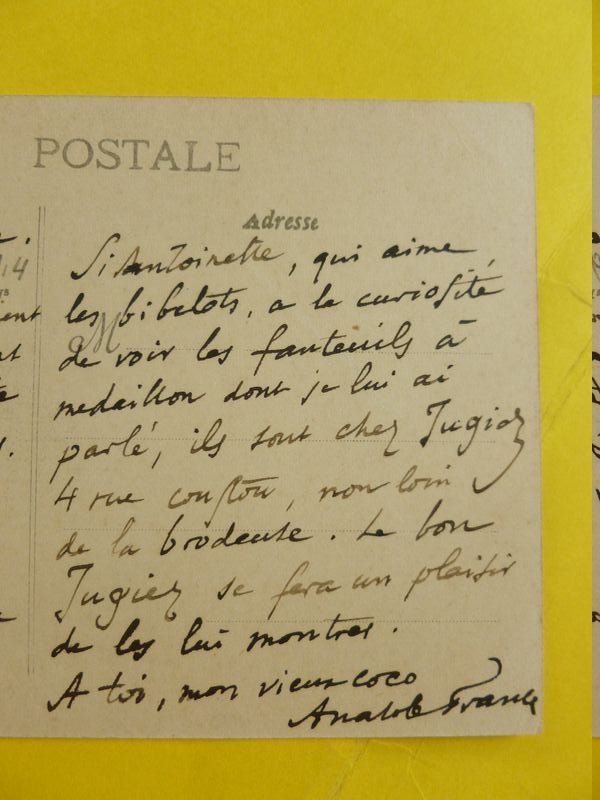 POSTALE
Adresse
Si Antoinette, qui aime
les bibelots, a la curiosité
M
de voir les fauteuils à
medaillon dont je lui ai
parlé, ils sont chez Jugiez
4 rue coustou, non loin
de la brodeuse. Le bon
Jugiez se fera un plaisir
de les lui montrer.
A toi, mon vieux coco
Anatole France